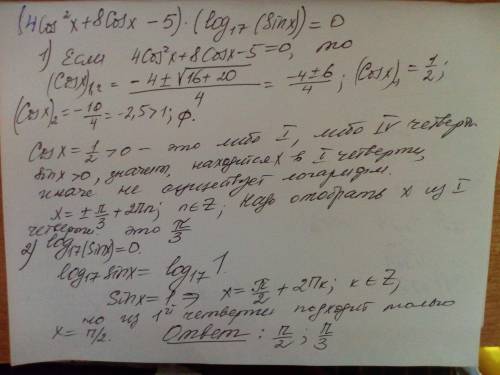 (4Cos²x+8Cosx-5)·(log₁₇(Sinx))=0
1) Если 4Cos²x+8Cosx-5=0, то
(Cosx)₁,₂ = (-4±√16+20)/4 = (-4±6)/4; (Cosx)₁ = 1/2;
(Cosx)₂ = -10/4 = -2,5>1; ∅.
Cosx = 1/2 >0 - это либо I, либо IV четверти
sinx>0, значит, находится x в I четверти,
иначе не существует логарифм.
x = ±π/3 + 2πn; n∈Z; Надо отобрать x из I
четверти это π/3
2) log₁₇(Sinx)=0.
log₁₇Sinx = log₁₇1.
Sinx=1. ⇒ x = π/2 + 2πк; к∈Z,
но из 1ой четверти подходит только
x = π/2. Ответ: π/2; π/3